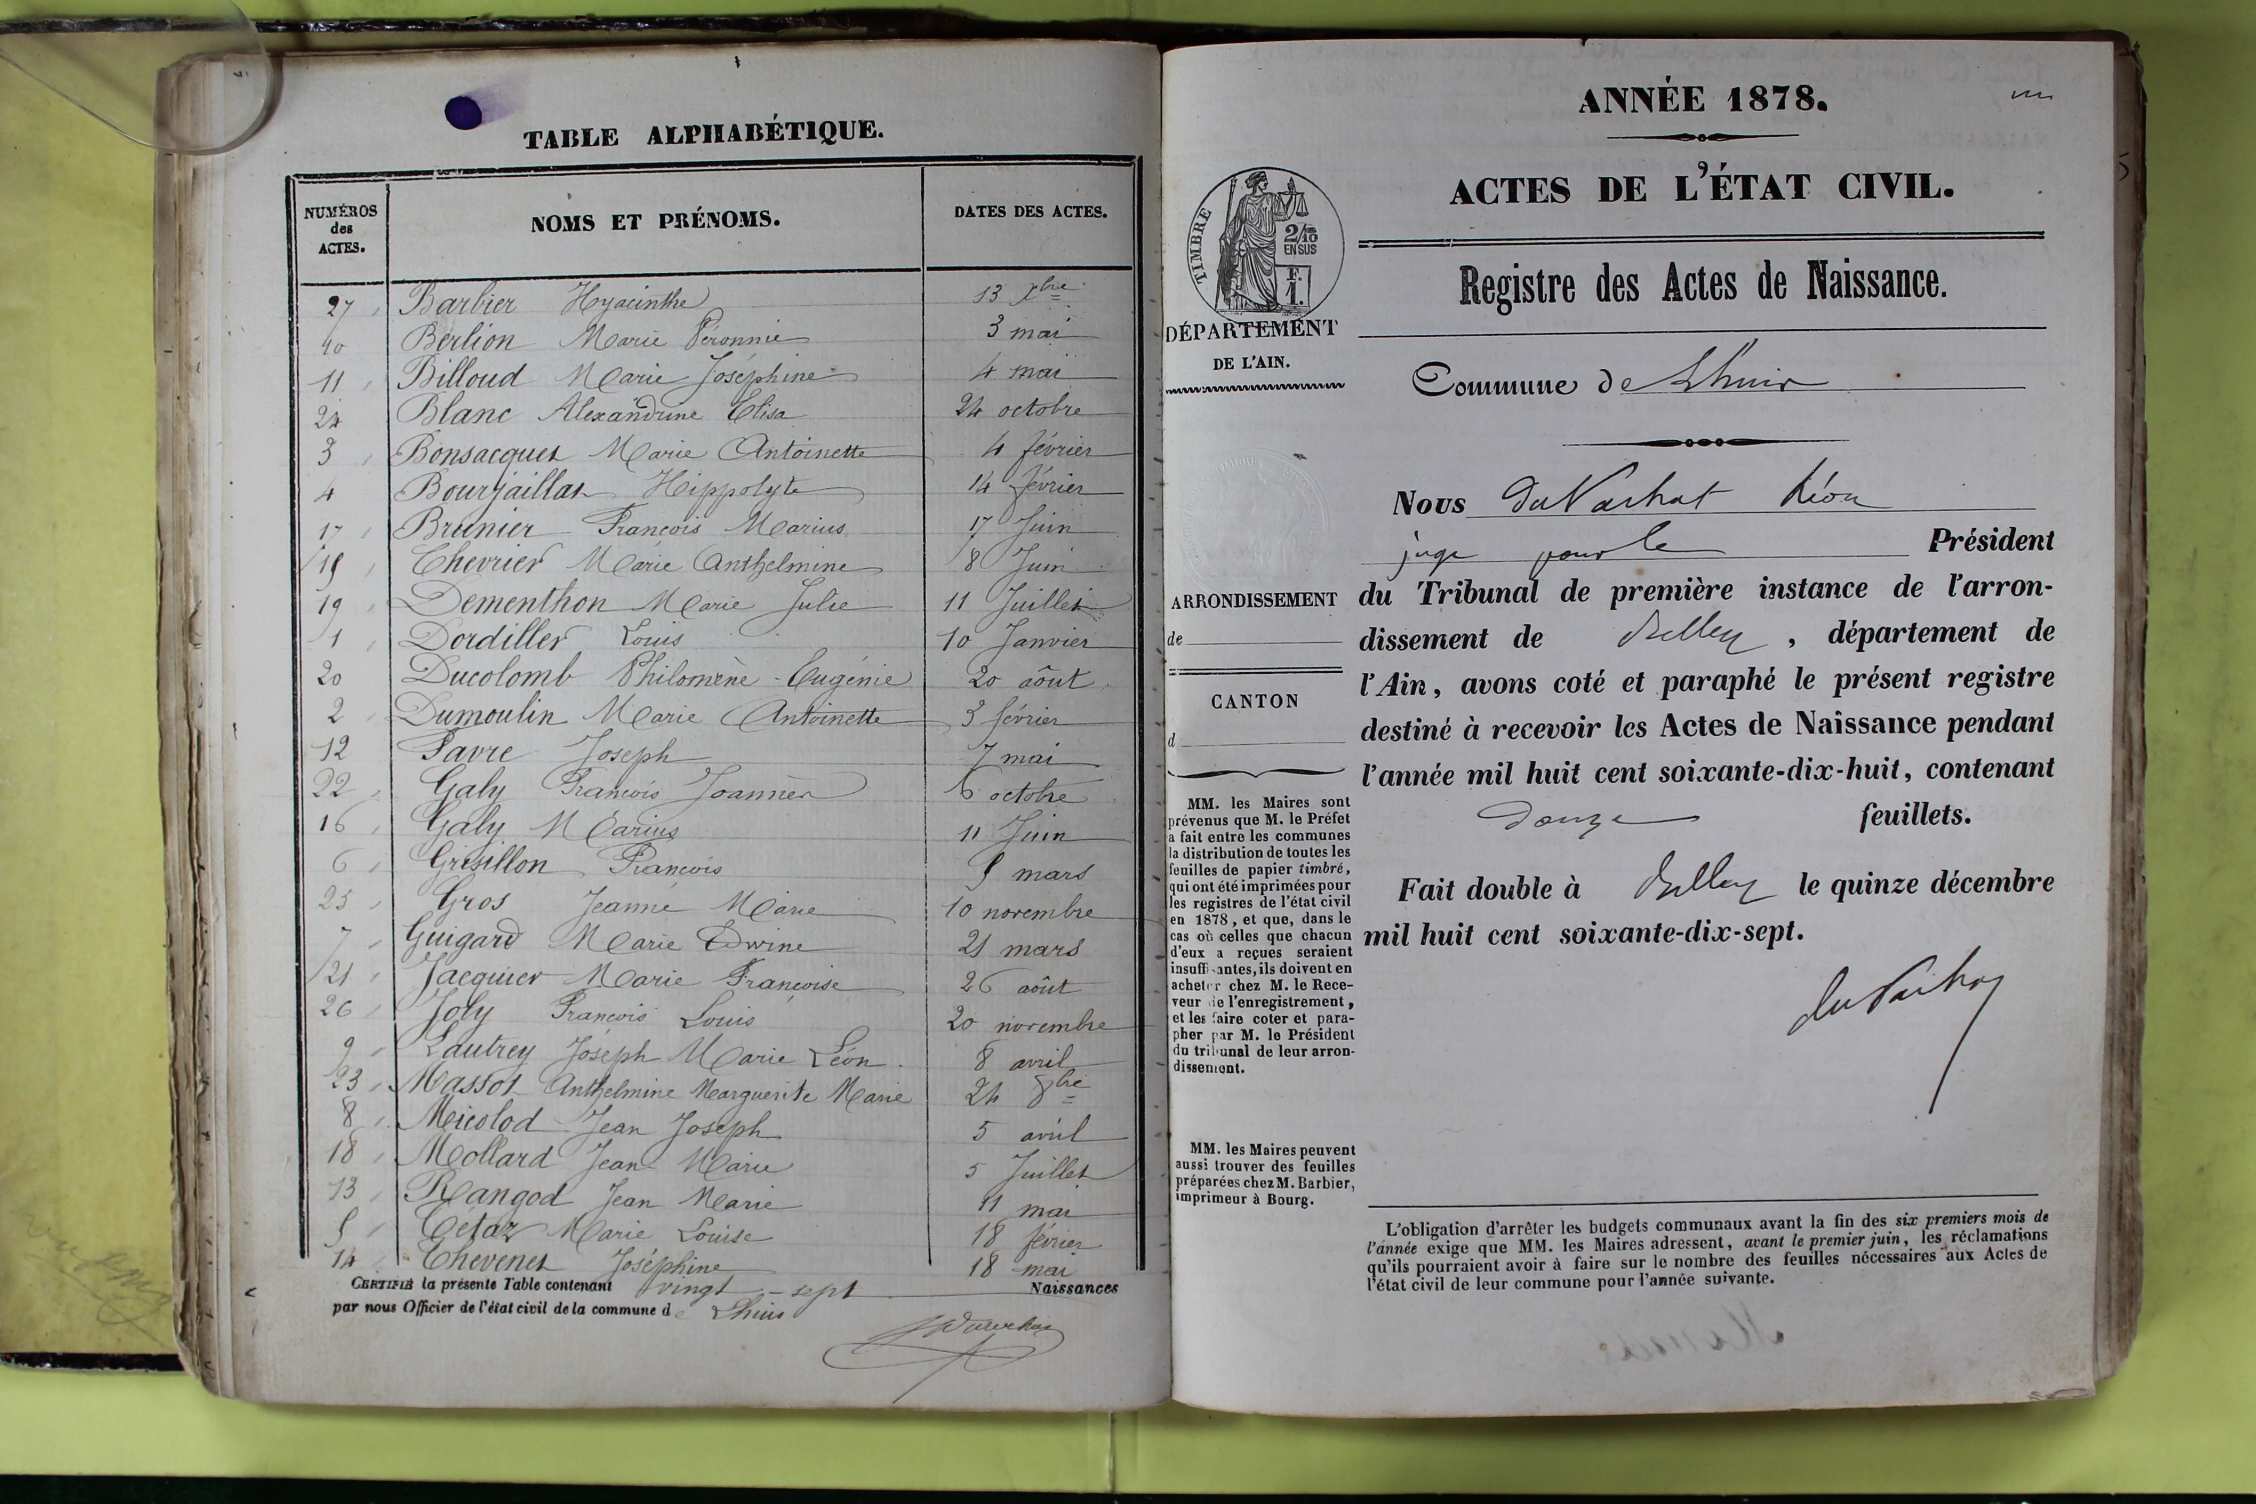 TABLE ALPHABÉTIQUE.
NUMÉROS des ACTES. NOMS ET PRÉNOMS. DATES DES ACTES.
27 Barbier Hyacinthe 13 Xbre
10 Berlion Marie Péronnie 3 mai
11 Billoud Marie Joséphine 4 mai
24 Blanc Alexandrine Elisa 24 octobre
3 Bonsacquet Marie Antoinette 4 février
4 Bourjaillat Hippolyte 14 février
17 Brunier François Marius 17 Juin
15 Chevrier Marie Anthelmine 8 Juin
19 Dementhon Marie Julie 11 Juillet
1 Dordillet Louis 10 Janvier
20 Ducolomb Philomène Eugénie 20 août
2 Dumoulin Marie Antoinette 3 février
12 Favre Joseph 7 mai
22 Galy François Joannès 6 octobre
16 Galy Marius 11 Juin
6 Grisillon François 9 mars
25 Gros Jeanne Marie 10 novembre
7 Guigard Marie Edwine 21 mars
21 Jacquier Marie Françoise 26 août
26 Joly François Louis 20 novembre
9 Lautrey Joseph Marie Léon 8 avril
23 Massot Anthelmine Marguerite Marie 24 8bre
8 Micolod Jean Joseph 5 avril
18 Mollard Jean Marie 5 Juillet
13 Rangod Jean Marie 11 mai
5 Tétaz Marie Louise 18 février
14 Thevenet Joséphine 18 mai
CERTIFIÉ la présente Table contenant vingt-sept Naissances
par nous Officier de l'état civil de la commune de Lhuis
ANNÉE 1878.
ACTES DE L'ÉTAT CIVIL.
Registre des Actes de Naissance.
TIMBRE
2/10
EN SUS
F.
1.
DÉPARTEMENT
DE L'AIN.
Commune de Lhuis
Nous du Varhat Léon
juge pour le Président
du Tribunal de première instance de l'arron-
dissement de Belley, département de
l'Ain, avons coté et paraphé le présent registre
destiné à recevoir les Actes de Naissance pendant
l'année mil huit cent soixante-dix-huit, contenant
douze feuillets.
Fait double à Belley le quinze décembre
mil huit cent soixante-dix-sept.
ARRONDISSEMENT
de
CANTON
d
MM. les Maires sont
prévenus que M. le Préfet
a fait entre les communes
la distribution de toutes les
feuilles de papier timbré,
qui ont été imprimées pour
les registres de l'état civil
en 1878, et que, dans le
cas où celles que chacun
d'eux a reçues seraient
insuffisantes, ils doivent en
acheter chez M. le Rece-
veur de l'enregistrement,
et les faire coter et para-
pher par M. le Président
du tribunal de leur arron-
dissement.
MM. les Maires peuvent
aussi trouver des feuilles
préparées chez M. Barbier,
imprimeur à Bourg.
L'obligation d'arrêter les budgets communaux avant la fin des six premiers mois de
l'année exige que MM. les Maires adressent, avant le premier juin, les réclamations
qu'ils pourraient avoir à faire sur le nombre des feuilles nécessaires aux Actes de
l'état civil de leur commune pour l'année suivante.